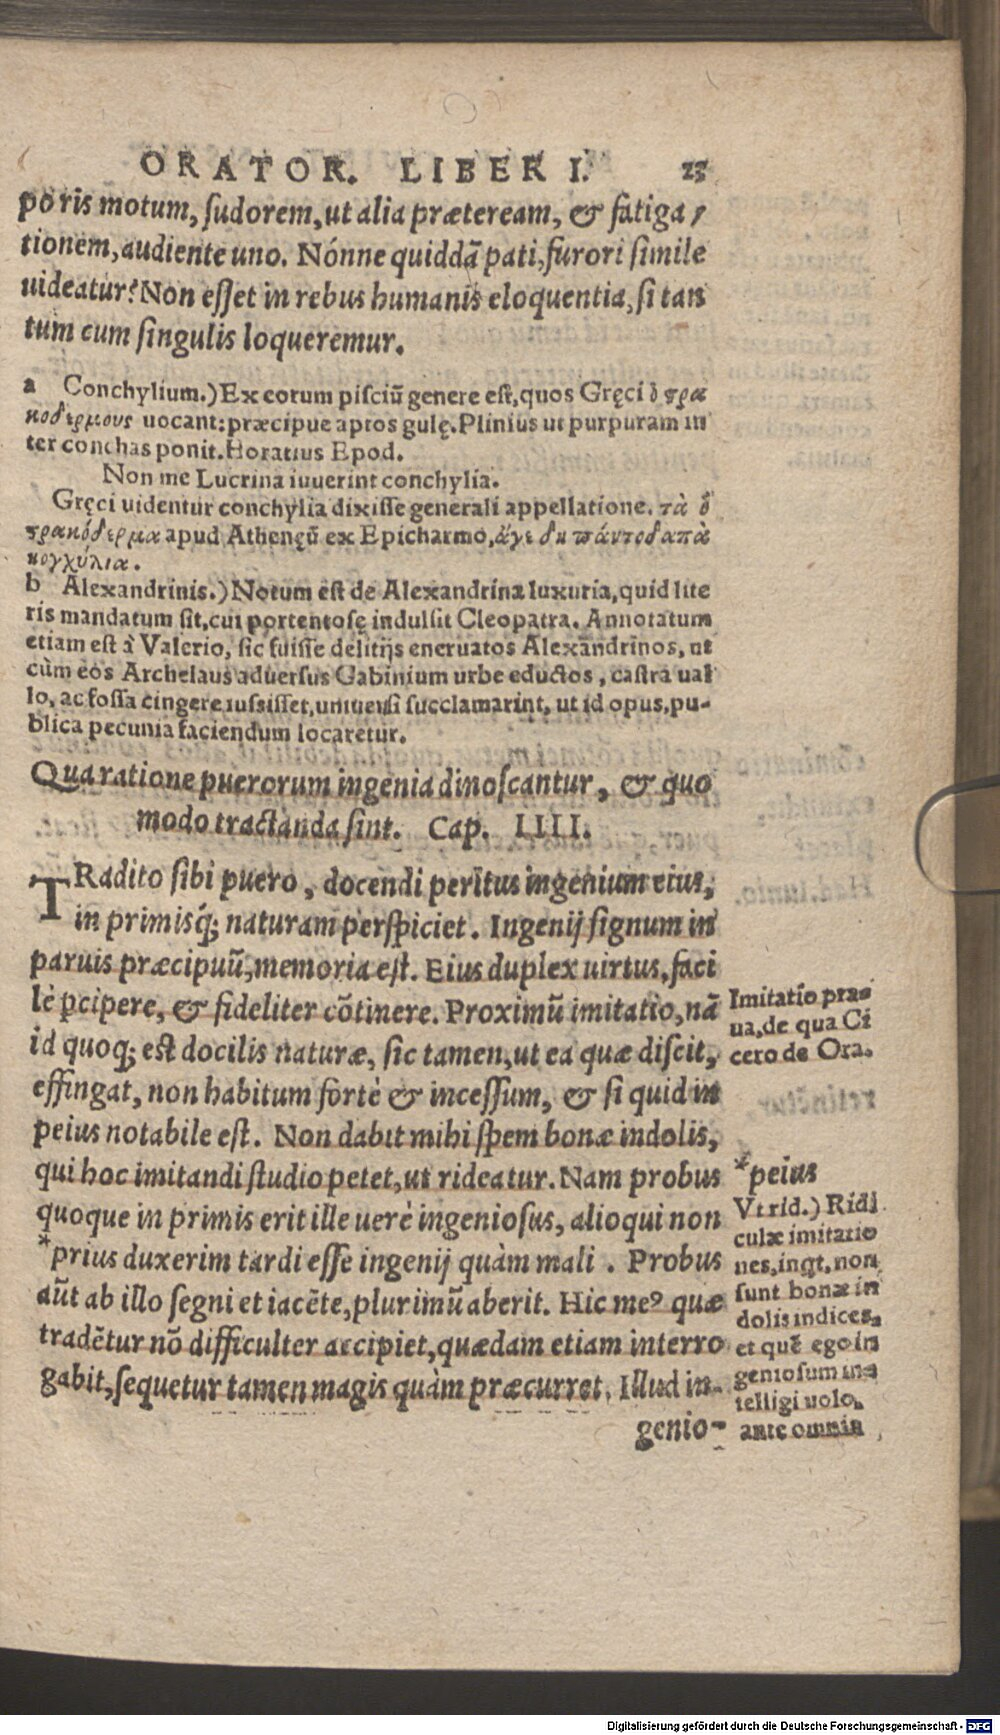 ORATOR. LIBER I. 23
poris motum, sudorem, ut alia præteream, & fatiga/
tionem, audiente uno. Nónne quiddã pati, furori simile
uideatur? Non esset in rebus humanis eloquentia, si tan
tum cum singulis loqueremur.
a Conchylium.) Ex eorum pisciũ generе est, quos Gręci ὀστρα
κοδέρμους uocant: præcipue aptos gulę. Plinius ut purpuram in
ter conchas ponit. Horatius Epod.
Non me Lucrina iuuerint conchylia.
Gręci uidentur conchylia dixisse generali appellatione. τὰ ὀ
στρακόδερμα apud Athenęũ ex Epicharmo, ἄγε δὴ πάντοδαπὰ
κογχύλια.
b Alexandrinis.) Notum est de Alexandrina luxuria, quid lite
ris mandatum sit, cui portentosę indulsit Cleopatra. Annotatum
etiam est à Valerio, sic fuisse delitijs eneruatos Alexandrinos, ut
cùm eos Archelaus aduersus Gabinium urbe eductos, castra ual
lo, ac fossa cingere iussisset, uniuersi succlamarint, ut id opus, pu-
blica pecunia faciendum locaretur.
Qua ratione puerorum ingenia dinoscantur, & quo
modo tractanda sint. Cap. IIII.
TRadito sibi puero, docendi peritus ingenium eius,
in primisq; naturam perspiciet. Ingenij signum in
paruis præcipuũ, memoria est. Eius duplex uirtus, faci
lè pcipere, & fideliter cõtinere. Proximũ imitatio, nã
id quoq; est docilis naturæ, sic tamen, ut ea quæ discit,
effingat, non habitum fortè & incessum, & si quid in
peius notabile est. Non dabit mihi spem bonæ indolis,
qui hoc imitandi studio petet, ut rideatur. Nam probus
quoque in primis erit ille uerè ingeniosus, alioqui non
*prius duxerim tardi esse ingenij quàm mali. Probus
aũt ab illo segni et iacẽte, plurimũ aberit. Hic meꝰ quæ
tradẽtur nõ difficulter accipiet, quædam etiam interro
gabit, sequetur tamen magis quàm præcurret. Illud in-
genio-
Imitatio pra-
ua, de qua Ci
cero de Ora.
*peius
Vt rid.) Ridi
culæ imitatio
nes, inqt, non
sunt bonæ in
dolis indices,
et quẽ ego in
geniosum in-
telligi uolo,
ante omnia
Digitalisierung gefördert durch die Deutsche Forschungsgemeinschaft - DFG